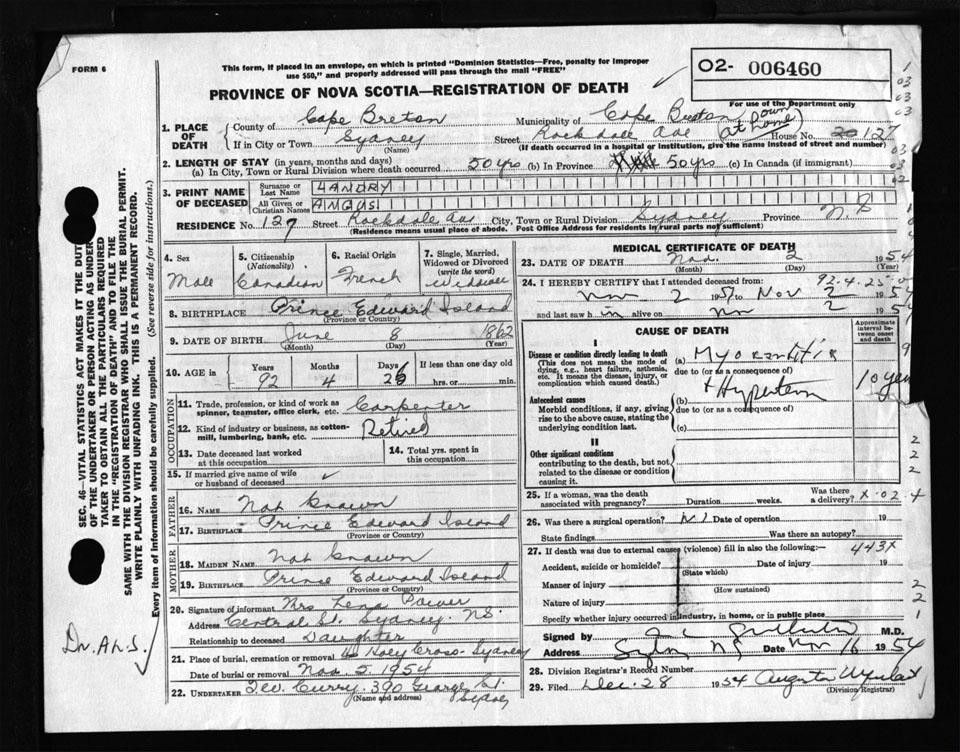 FORM 6
This form, if placed in an envelope, on which is printed "Dominion Statistics—Free, penalty for improper
use $50," and properly addressed will pass through the mail "FREE"
PROVINCE OF NOVA SCOTIA—REGISTRATION OF DEATH
02- 006460
For use of the Department only
1. PLACE OF DEATH
County of Cape Breton Municipality of Cape Breton
If in City or Town Sydney Street Rockdale Ave (at own home) House No. 127
(Name) (If death occurred in a hospital or institution, give the name instead of street and number)
2. LENGTH OF STAY (in years, months and days)
(a) In City, Town or Rural Division where death occurred 50 yrs (b) In Province 50 yrs (c) In Canada (if immigrant)
3. PRINT NAME OF DECEASED
Surname or Last Name LANDRY
All Given or Christian Names ANGUS
RESIDENCE No. 127 Street Rockdale Ave City, Town or Rural Division Sydney Province
(Residence means usual place of abode. Post Office Address for residents in rural parts not sufficient)
4. Sex Male
5. Citizenship (Nationality) Canadian
6. Racial Origin French
7. Single, Married, Widowed or Divorced (write the word)
8. BIRTHPLACE Prince Edward Island
(Province or Country)
9. DATE OF BIRTH June 8 1862
(Month) (Day) (Year)
10. AGE in Years 92 Months 4 Days If less than one day old hrs. or min.
OCCUPATION
11. Trade, profession, or kind of work as spinner, teamster, office clerk, etc. Carpenter
12. Kind of industry or business, as cotton-mill, lumbering, bank, etc. Retired
13. Date deceased last worked at this occupation
14. Total yrs. spent in this occupation
15. If married give name of wife or husband of deceased
FATHER
16. Name Not known
17. Birthplace Prince Edward Island
(Province or Country)
MOTHER
18. Maiden Name Not known
19. Birthplace Prince Edward Island
(Province or Country)
20. Signature of informant Mrs Lena Power
Address Central St. Sydney. NS.
Relationship to deceased Daughter
21. Place of burial, cremation or removal Holy Cross Sydney
Date of burial or removal Nov 5. 1954
22. UNDERTAKER Geo. Curry. 390 George St. Sydney
(Name and address)
MEDICAL CERTIFICATE OF DEATH
23. DATE OF DEATH Nov. 2 1954
(Month) (Day) (Year)
24. I HEREBY CERTIFY that I attended deceased from: 92.4.25
Nov 2 to Nov 2 195
and last saw h im alive on Nov 2 195
CAUSE OF DEATH
Approximate interval between onset and death
I
Disease or condition directly leading to death
(This does not mean the mode of dying, e.g., heart failure, asthenia, etc. It means the disease, injury, or complication which caused death.)
(a) Myocarditis
due to (or as a consequence of)
Antecedent causes
Morbid conditions, if any, giving rise to the above cause, stating the underlying condition last.
(b) + Hyperten 10 year
due to (or as a consequence of)
(c)
II
Other significant conditions
contributing to the death, but not related to the disease or condition causing it.
25. If a woman, was the death associated with pregnancy? Duration weeks. Was there a delivery? X·02.4
26. Was there a surgical operation? Date of operation 19
State findings Was there an autopsy?
27. If death was due to external causes (violence) fill in also the following:— 443X
Accident, suicide or homicide? Date of injury 19
(State which)
Manner of injury
(How sustained)
Nature of injury
Specify whether injury occurred in industry, in home, or in public place
Signed by M.D.
Address Sydney NS Date Nov 16 1954
28. Division Registrar's Record Number
29. Filed Dec. 28 1954
(Division Registrar)
SEC. 46—VITAL STATISTICS ACT MAKES IT THE DUTY
OF THE UNDERTAKER OR PERSON ACTING AS UNDER-
TAKER TO OBTAIN ALL THE PARTICULARS REQUIRED
IN THE "REGISTRATION OF DEATH" AND TO FILE THE
SAME WITH THE DIVISION REGISTRAR WHO SHALL ISSUE THE BURIAL PERMIT.
WRITE PLAINLY WITH UNFADING INK. THIS IS A PERMANENT RECORD.
Every item of information should be carefully supplied. (See reverse side for instructions.)